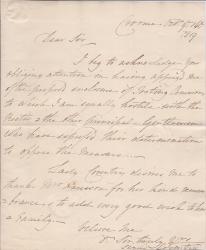 Dear Sir
I beg to acknowledge your
obliging attention in having apprised me
of the proposed inclosure of Tooting Common
to which I am equally hostile with the
Rector & the other principal Gentlemen
who have expressed their determination
to oppose the measure.
Lady Coventry desires me to
thank Mrs for her kind
& to add every good wish to her
& family.
Believe me
Dr Sir truly Yrs